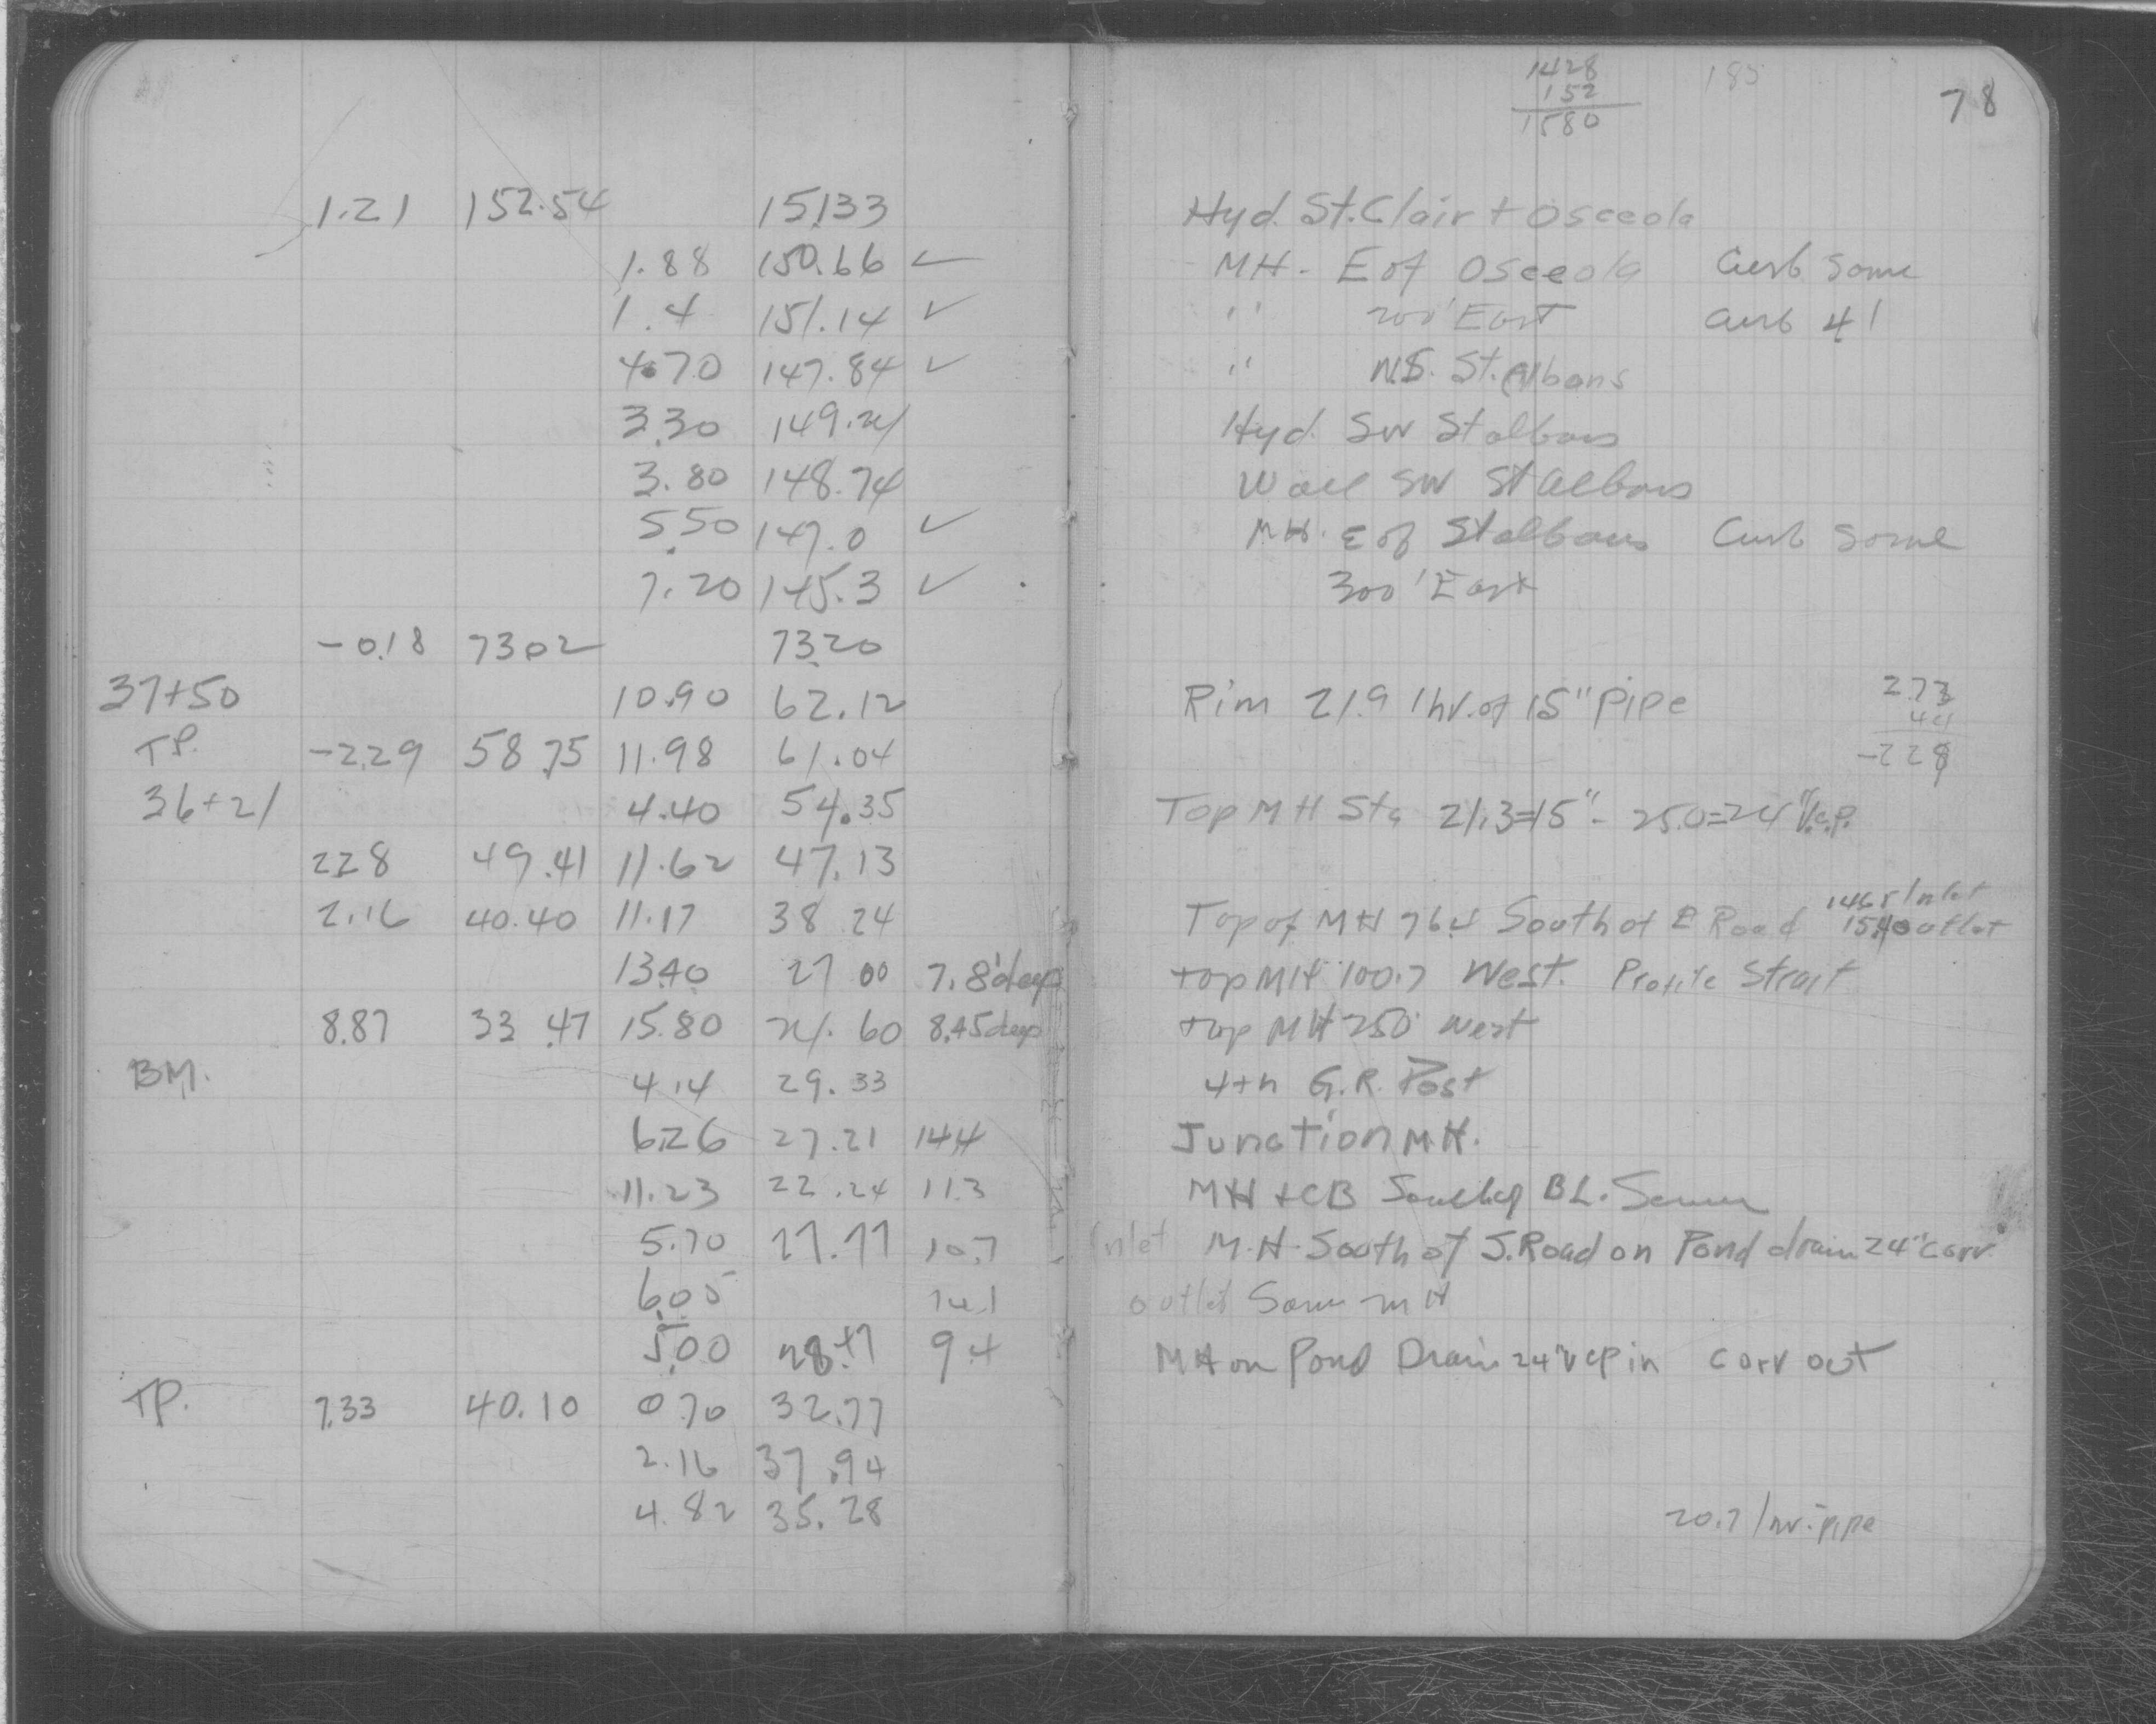 1428 185
152 78
1580
1.21 152.54 151.33 Hyd. St. Clair + Osceola
1.88 150.66 ✓ MH - E of Osceola Curb Same
1.4 151.14 ✓ " 200' East Curb 41
4.70 147.84 ✓ " N.S. St. Albans
3.30 149.24 Hyd. SW St albans
3.80 148.74 Wall SW St albans
5.50 147.0 ✓ MH. E of St albans Curb Same
7.20 145.3 ✓ 300' East
-0.18 73.02 73.20
37+50 10.90 62.12 Rim 21.9 Inv. of 15" Pipe 2.73
44
T.P. -2.29 58.75 11.98 61.04 -229
36+21 4.40 54.35 Top MH Sta 21.3=15" - 25.0=24" V.c.p.
2.28 49.41 11.62 47.13
2.16 40.40 11.17 38 24 Top of MH 76.4 South of E Road 14.65 Inlet
15.40 outlet
13.40 27 00 7.8' deep top MH 100.7 West. Profile Strait
8.87 33.47 15.80 24.60 8.45 deep top MH 250 West
BM. 4.14 29.33 4th G.R. Post
6.26 27.21 14.4 Junction M.H.
11.23 22.24 11.3 MH + CB South of BL. Sewer
5.70 27.77 10.7 Inlet M.H. South of S. Road on Pond drain 24" corr.
6.05 14.1 outlet Same MH
5.00 28.47 9.4 MH on Pond Drain 24" vcp in Corr out
T.P. 7.33 40.10 0.70 32.77
2.16 37.94
4.82 35.28 20.7 Inv. pipe